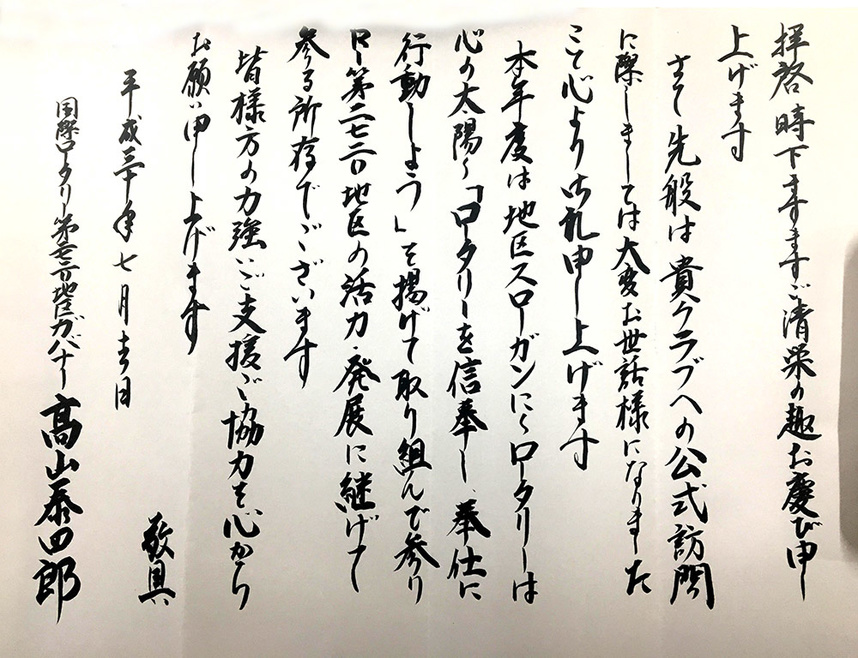 拝啓 時下ますますご清栄の趣お慶び申し
上げます
さて先般は貴クラブへの公式訪問
に際しましては大変お世話様になりました
こと心より御礼申し上げます
本年度は地区スローガンに〜ロータリーは
心の太陽〜「ロータリーを信奉し、奉仕に
行動しよう」を揚げて取り組んで参り
ロー第二七二〇地区の活力・発展に継げて
参る所存でございます
皆様方の力強いご支援ご協力を心から
お願い申し上げます
敬具
平成三十年七月吉日
国際ロータリー第二七二〇地区ガバナー
髙山泰四郎